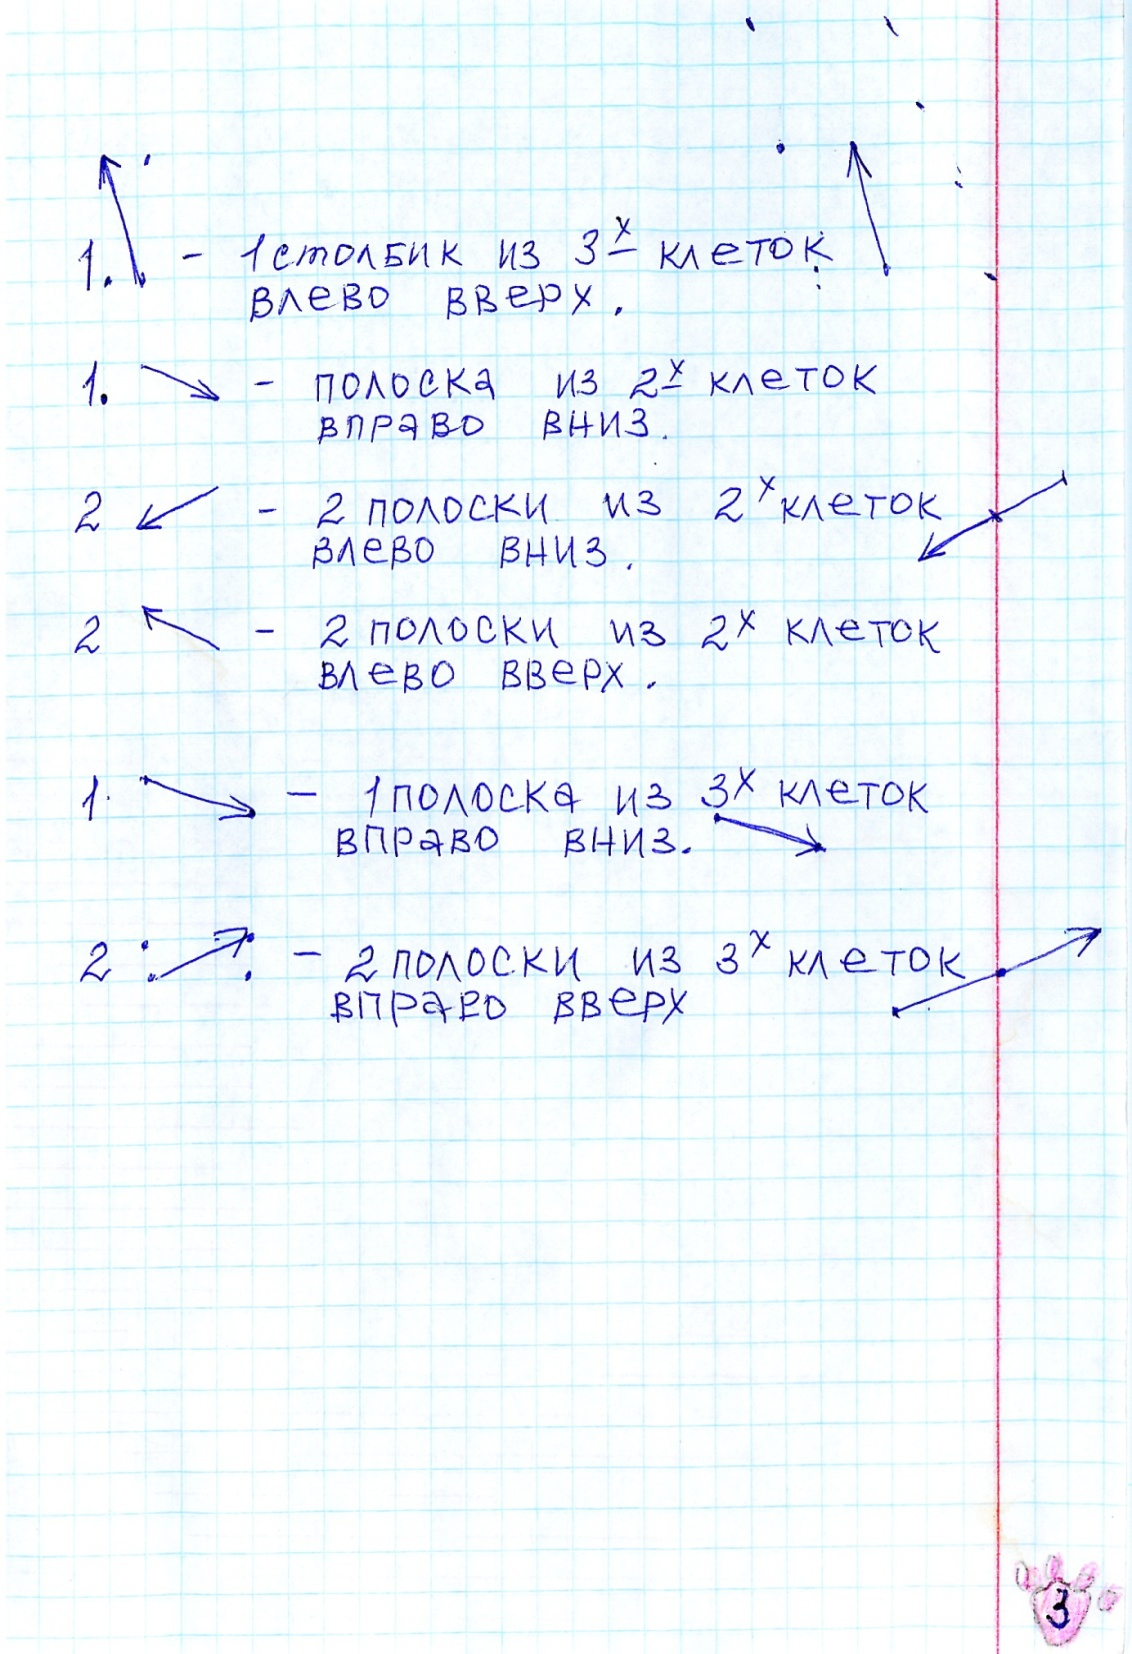 1. - 1 столбик из 3х клеток
влево вверх.
1. - полоска из 2х клеток
вправо вниз.
2 - 2 полоски из 2х клеток
влево вниз.
2 - 2 полоски из 2х клеток
влево вверх.
1. - 1 полоска из 3х клеток
вправо вниз.
2 - 2 полоски из 3х клеток
вправо вверх
3